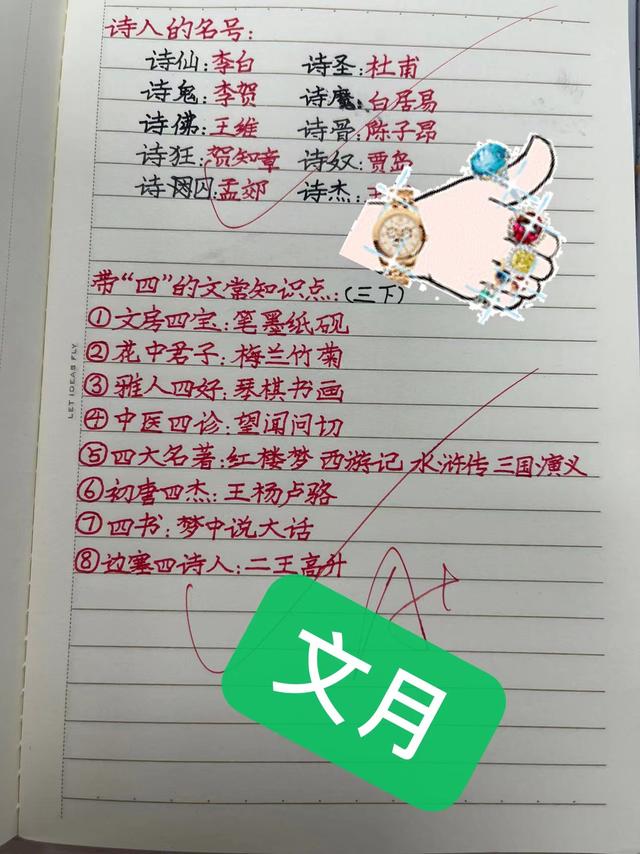 诗人的名号:
诗仙:李白 诗圣:杜甫
诗鬼:李贺 诗魔:白居易
诗佛:王维 诗骨:陈子昂
诗狂:贺知章 诗奴:贾岛
诗囚:孟郊 诗杰:王
带“四”的文常知识点:(三下)
①文房四宝:笔墨纸砚
②花中君子:梅兰竹菊
③雅人四好:琴棋书画
④中医四诊:望闻问切
⑤四大名著:红楼梦 西游记 水浒传 三国演义
⑥初唐四杰:王杨卢骆
⑦四书:梦中说大话
⑧边塞四诗人:二王高升
A+
文月
LET IDEAS FLY